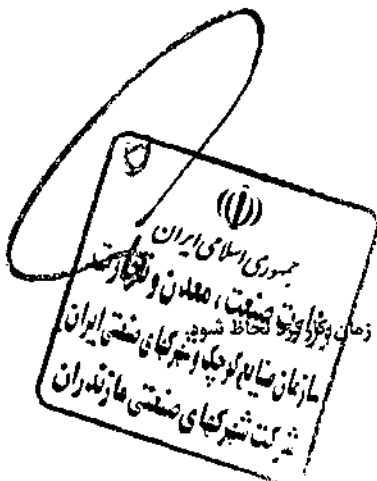 جمهوری اسلامی ایران
وزارت صنعت، معدن و تجارت
زمان لحاظ شود.
سازمان صنایع کوچک و شهرکهای صنعتی ایران
شرکت شهرکهای صنعتی مازندران